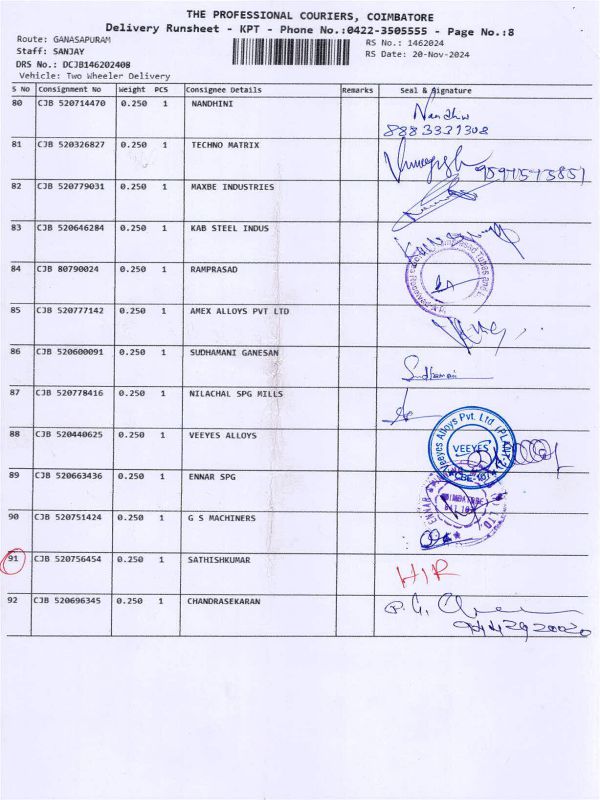 THE PROFESSIONAL COURIERS, COIMBATORE
Delivery Runsheet - KPT - Phone No.:0422-3505555 - Page No.:8
Route: GANASAPURAM RS No.: 1462024
Staff: SANJAY RS Date: 20-Nov-2024
DRS No.: DCJB146202408
Vehicle: Two Wheeler Delivery
S No Consignment No Weight PCS Consignee Details Remarks Seal & Signature
80 CJB 520714470 0.250 1 NANDHINI Nandhini
8883331308
81 CJB 520326827 0.250 1 TECHNO MATRIX
82 CJB 520779031 0.250 1 MAXBE INDUSTRIES
83 CJB 520646284 0.250 1 KAB STEEL INDUS
84 CJB 80790024 0.250 1 RAMPRASAD
85 CJB 520777142 0.250 1 AMEX ALLOYS PVT LTD
86 CJB 520600091 0.250 1 SUDHAMANI GANESAN Sudhamani
87 CJB 520778416 0.250 1 NILACHAL SPG MILLS
88 CJB 520440625 0.250 1 VEEYES ALLOYS Veeyes Alloys Pvt. Ltd
VEEYES
89 CJB 520663436 0.250 1 ENNAR SPG ENNAR
90 CJB 520751424 0.250 1 G S MACHINERS
91 CJB 520756454 0.250 1 SATHISHKUMAR HIR
92 CJB 520696345 0.250 1 CHANDRASEKARAN